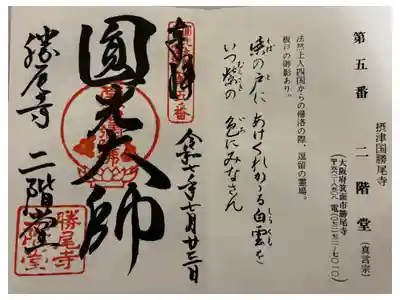 摂津国勝尾寺
第五番 二階堂(真言宗)
(大阪府箕面市勝尾寺
法然上人四国からの帰洛の際、逗留の霊場。
板戸の御影あり。
柴の戸に あけくれかゝる 白雲を
しば
しらくも
いつ紫の 色にみなさん
むらさき
いろ
奉拝
令和七年
圓光大師
勝尾寺 二階堂
勝尾寺